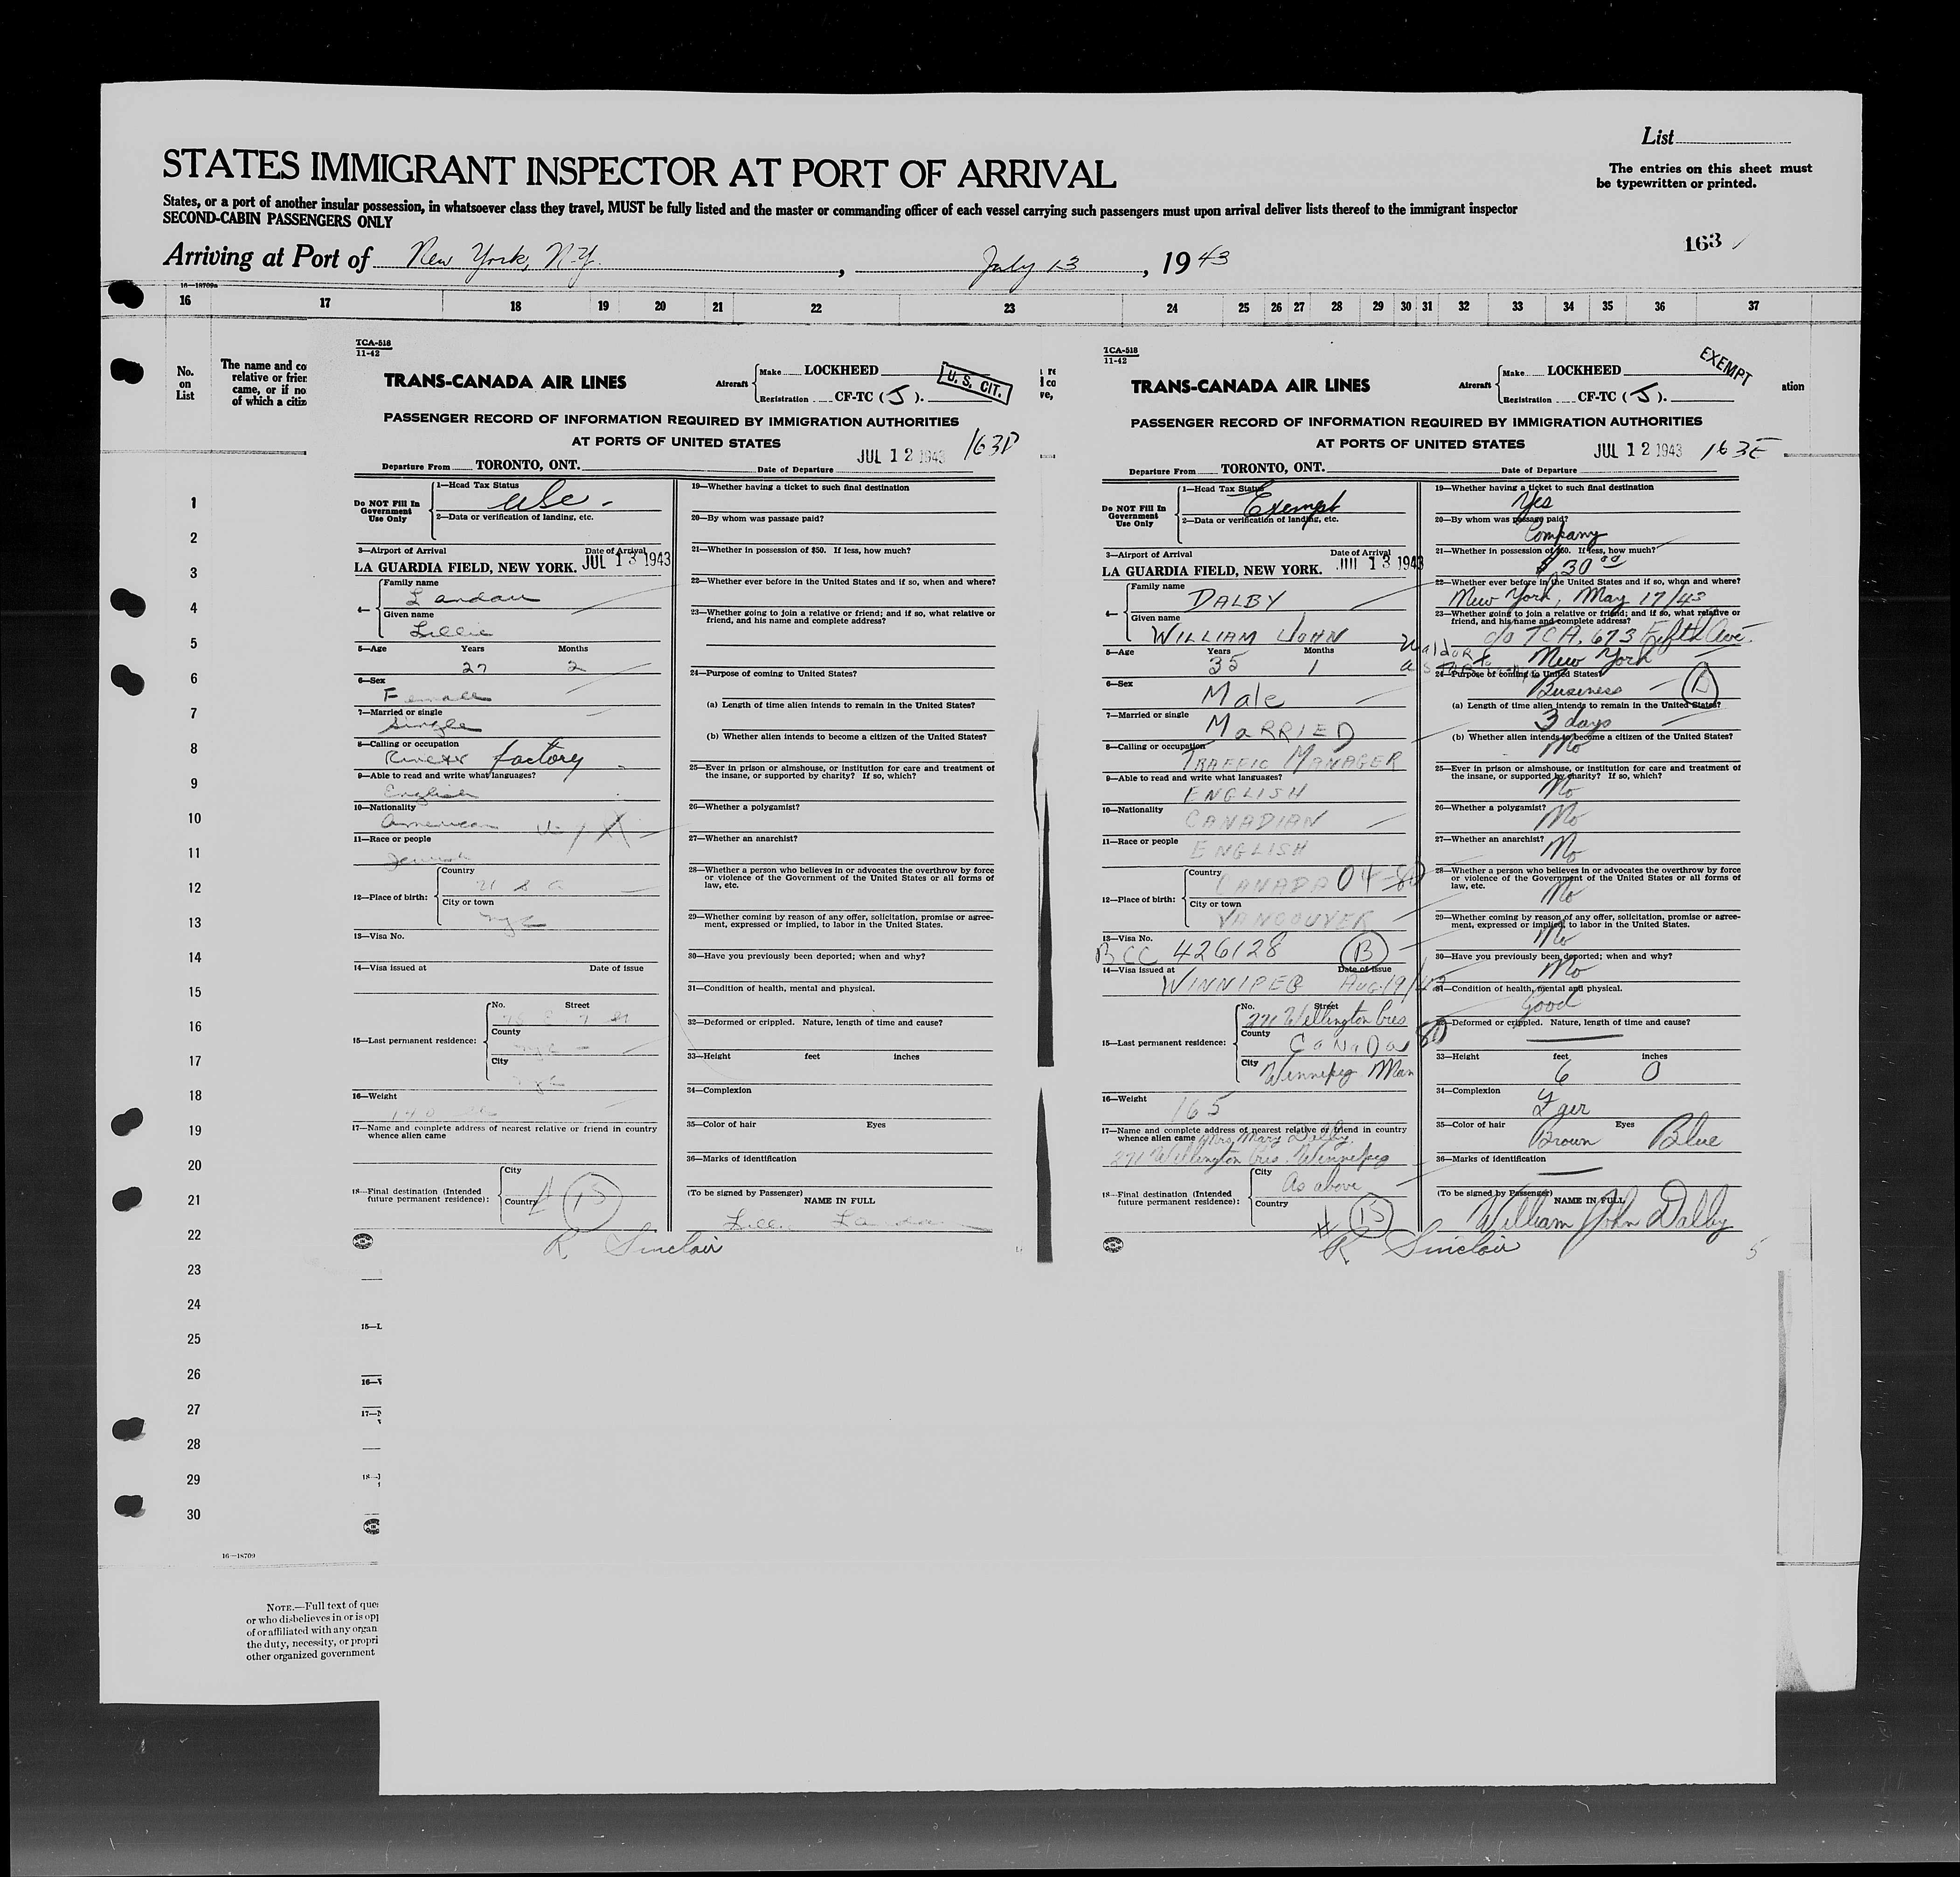 List
STATES IMMIGRANT INSPECTOR AT PORT OF ARRIVAL
The entries on this sheet must
be typewritten or printed.
States, or a port of another insular possession, in whatsoever class they travel, MUST be fully listed and the master or commanding officer of each vessel carrying such passengers must upon arrival deliver lists thereof to the immigrant inspector
SECOND-CABIN PASSENGERS ONLY
163
Arriving at Port of New York, N.Y. , July 13 , 1943
16—18709a
16 17 18 19 20 21 22 23 24 25 26 27 28 29 30 31 32 33 34 35 36 37
No.
on
List
The name and co
relative or frien
came, or if no
of which a citiz
TCA-518
11-42
TRANS-CANADA AIR LINES
Aircraft
Make LOCKHEED
Registration CF-TC (J).
U. S. CIT.
PASSENGER RECORD OF INFORMATION REQUIRED BY IMMIGRATION AUTHORITIES
AT PORTS OF UNITED STATES
JUL 12 1943 163D
Departure From TORONTO, ONT. Date of Departure
Do NOT Fill In
Government
Use Only
1—Head Tax Status
USC -
2—Data or verification of landing, etc.
3—Airport of Arrival Date of Arrival
LA GUARDIA FIELD, NEW YORK. JUL 13 1943
4— Family name
Landau
Given name
Lillie
5—Age Years Months
27 2
6—Sex
Female
7—Married or single
Single
8—Calling or occupation
factory
9—Able to read and write what languages?
English
10—Nationality
American
11—Race or people
Jewish
12—Place of birth:
Country
U S A
City or town
NYC
13—Visa No.
14—Visa issued at Date of issue
15—Last permanent residence:
No. Street
County
NYC
City
NYC
16—Weight
140
17—Name and complete address of nearest relative or friend in country
whence alien came
18—Final destination (Intended
future permanent residence):
City
Country
15
R Sinclair
19—Whether having a ticket to such final destination
20—By whom was passage paid?
21—Whether in possession of $50. If less, how much?
22—Whether ever before in the United States and if so, when and where?
23—Whether going to join a relative or friend; and if so, what relative or
friend, and his name and complete address?
24—Purpose of coming to United States?
(a) Length of time alien intends to remain in the United States?
(b) Whether alien intends to become a citizen of the United States?
25—Ever in prison or almshouse, or institution for care and treatment of
the insane, or supported by charity? If so, which?
26—Whether a polygamist?
27—Whether an anarchist?
28—Whether a person who believes in or advocates the overthrow by force
or violence of the Government of the United States or all forms of
law, etc.
29—Whether coming by reason of any offer, solicitation, promise or agree-
ment, expressed or implied, to labor in the United States.
30—Have you previously been deported; when and why?
31—Condition of health, mental and physical.
32—Deformed or crippled. Nature, length of time and cause?
33—Height feet inches
34—Complexion
35—Color of hair Eyes
36—Marks of identification
(To be signed by Passenger) NAME IN FULL
Lillie Landau
TCA-518
11-42
TRANS-CANADA AIR LINES
Aircraft
Make LOCKHEED
Registration CF-TC (J).
EXEMPT
ation
PASSENGER RECORD OF INFORMATION REQUIRED BY IMMIGRATION AUTHORITIES
AT PORTS OF UNITED STATES
JUL 12 1943 163E
Departure From TORONTO, ONT. Date of Departure
Do NOT Fill In
Government
Use Only
1—Head Tax Status
Exempt
2—Data or verification of landing, etc.
3—Airport of Arrival Date of Arrival
LA GUARDIA FIELD, NEW YORK. JUL 13 1943
4— Family name
DALBY
Given name
WILLIAM JOHN
5—Age Years Months
35 1
6—Sex
Male
7—Married or single
MARRIED
8—Calling or occupation
TRAFFIC MANAGER
9—Able to read and write what languages?
ENGLISH
10—Nationality
CANADIAN
11—Race or people
ENGLISH
12—Place of birth:
Country
CANADA 04-
City or town
VANCOUVER
13—Visa No.
BCC 426128 B
14—Visa issued at Date of issue
WINNIPEG AUG 19/42
15—Last permanent residence:
No. Street
271 Wellington Cres
County
CaNaDa
City
Winnipeg Man
16—Weight
165
17—Name and complete address of nearest relative or friend in country
whence alien came Mrs Mary Dalby
271 Wellington Cres. Winnipeg
18—Final destination (Intended
future permanent residence):
City
As above
Country
15
R Sinclair
19—Whether having a ticket to such final destination
Yes
20—By whom was passage paid?
Company
21—Whether in possession of $50. If less, how much?
$30 00
22—Whether ever before in the United States and if so, when and where?
New York, May 17/43
23—Whether going to join a relative or friend; and if so, what relative or
friend, and his name and complete address?
c/o TCA, 673 Fifth Ave.
Waldorf
New York
24—Purpose of coming to United States?
Business
(a) Length of time alien intends to remain in the United States?
3 days
(b) Whether alien intends to become a citizen of the United States?
No
25—Ever in prison or almshouse, or institution for care and treatment of
the insane, or supported by charity? If so, which?
No
26—Whether a polygamist?
No
27—Whether an anarchist?
No
28—Whether a person who believes in or advocates the overthrow by force
or violence of the Government of the United States or all forms of
law, etc.
No
29—Whether coming by reason of any offer, solicitation, promise or agree-
ment, expressed or implied, to labor in the United States.
No
30—Have you previously been deported; when and why?
No
31—Condition of health, mental and physical.
Good
32—Deformed or crippled. Nature, length of time and cause?
33—Height feet inches
6 0
34—Complexion
35—Color of hair Eyes
Brown Blue
36—Marks of identification
(To be signed by Passenger) NAME IN FULL
William John Dalby
5
1
2
3
4
5
6
7
8
9
10
11
12
13
14
15
16
17
18
19
20
21
22
23
24
25
26
27
28
29
30
15—L
17—N
16—18709
NOTE.—Full text of que
or who disbelieves in or is opp
of or affiliated with any organ
the duty, necessity, or propri
other organized government